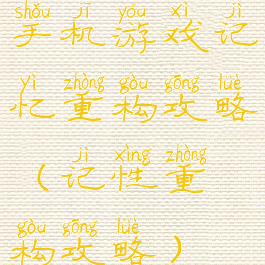 shǒu jī yóu xì jì
手机游戏记
yì zhòng gòu gōng lüè
忆重构攻略
jì xìng zhòng
（记性重
gòu gōng lüè
构攻略）